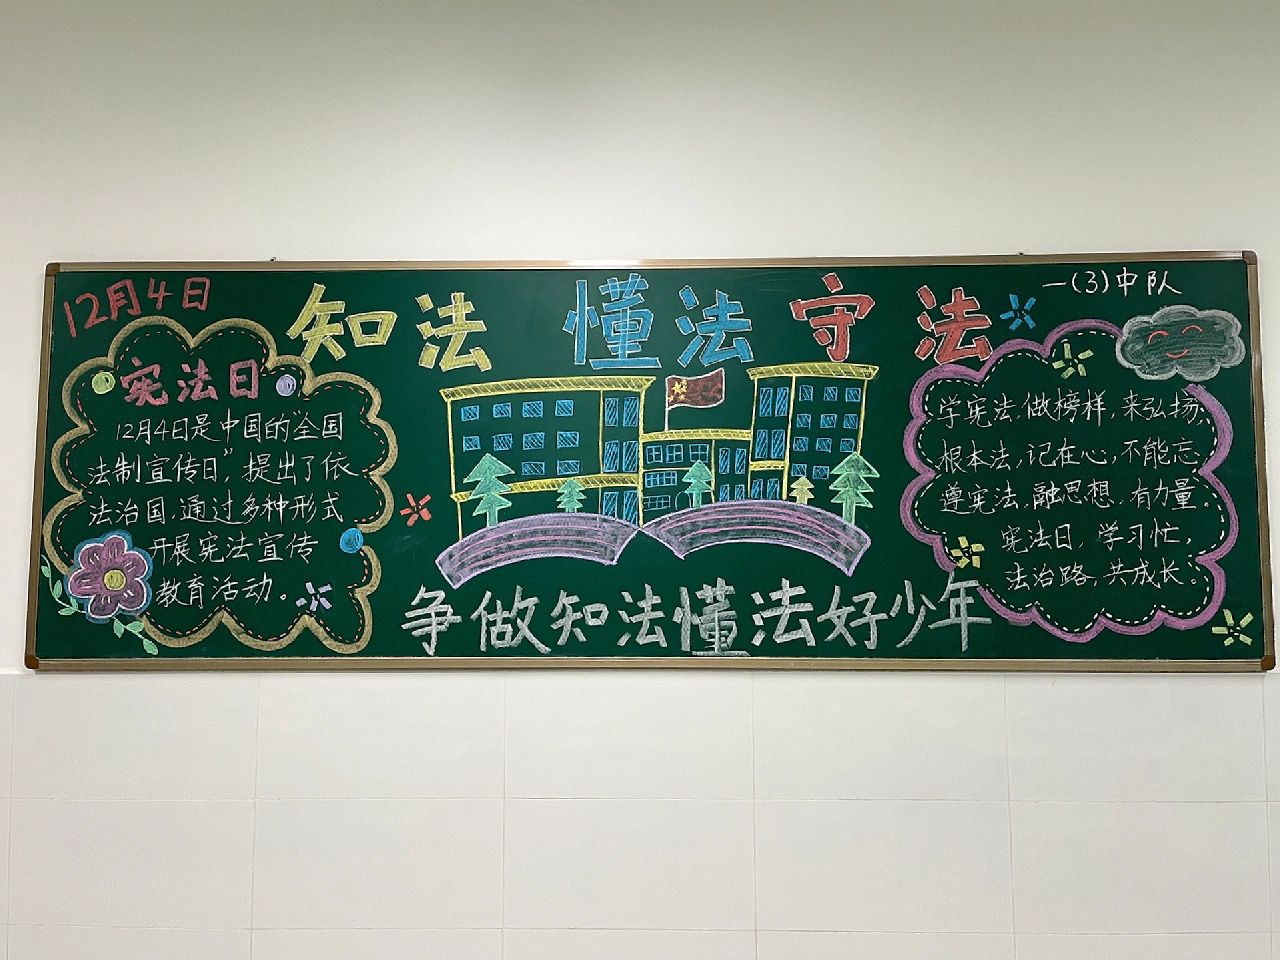 12月4日
知法 懂法守法
一(3)中队
宪法日
12月4日是中国的全国
法制宣传日”,提出了依
法治国,通过多种形式
开展宪法宣传
教育活动。
学宪法,做榜样,来弘扬,
根本法,记在心,不能忘
遵宪法,融思想,有力量。
宪法日,学习忙,
法治路,共成长。
争做知法懂法好少年